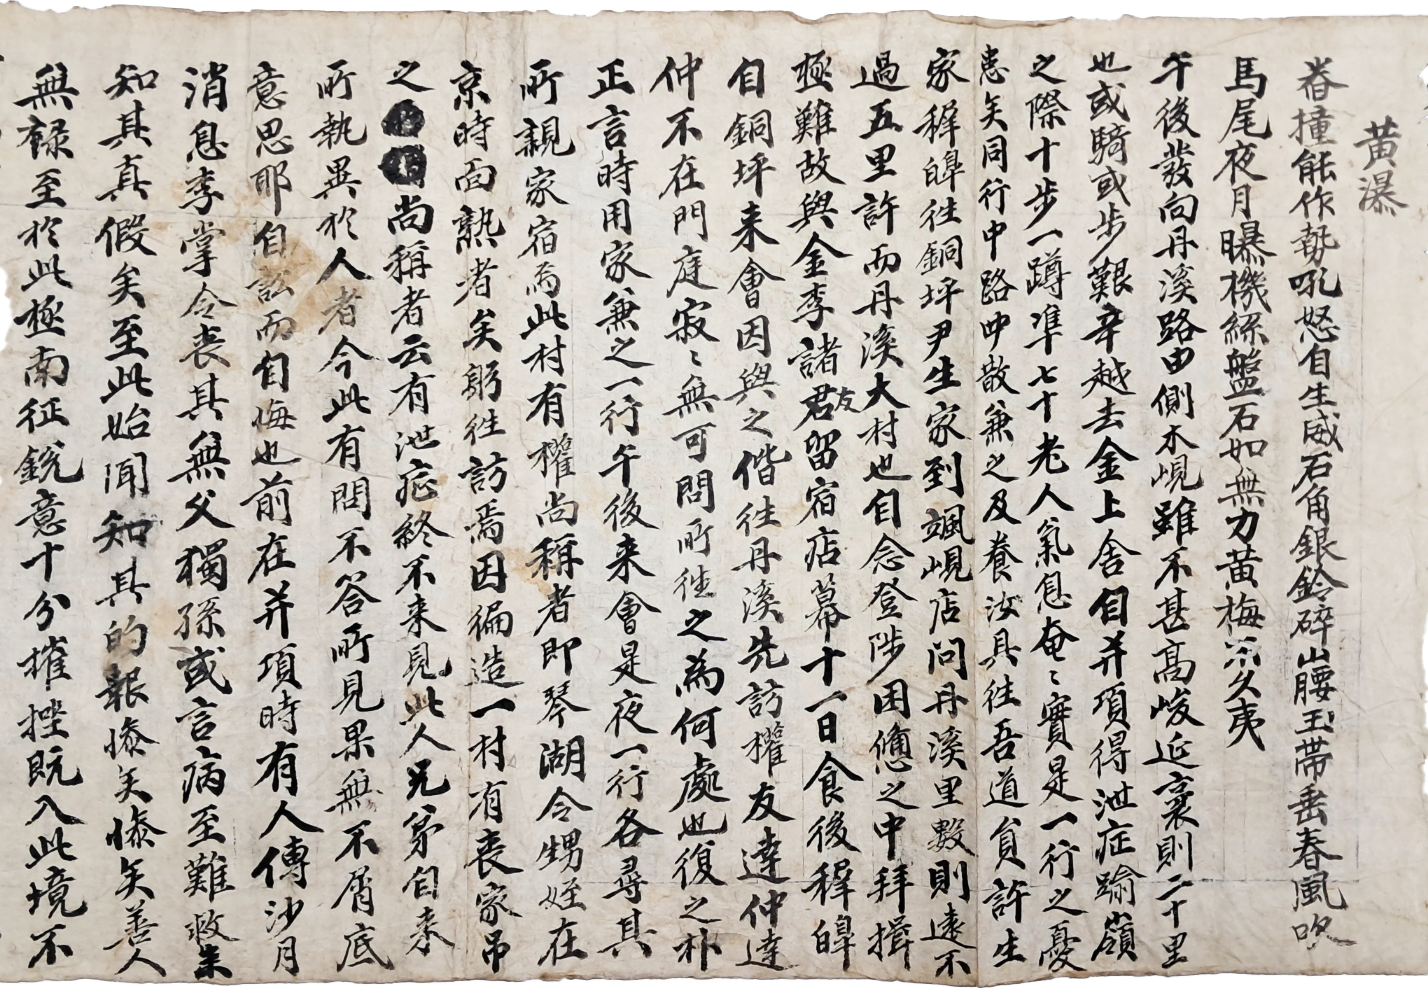 黃瀑
眷撞能作勢吼怒自生威石角銀鈴碎山腰玉帶垂春風吹
馬尾夜月曝機絲盤石如無力黃梅不久夷
午後發向丹溪路由側木峴雖不甚高峻延袤則二十里
也或騎或步艱辛越去金上舍自幷項得泄症踰嶺
之際十步一蹲準七十老人氣息奄〻實是一行之憂
患矣同行中路呻散兼之及養汝具往吾道負許生
家稺皥往銅坪尹生家到颯峴店問丹溪里數則遠不
過五里許而丹溪大村也自念登陟困憊之中拜揖
極難故與金李諸君友留宿店幕十一日食後稺皥
自銅坪来會因與之偕往丹溪先訪權友達仲達
仲不在門庭寂〻無可問所徃之為何處也復之朴
正言時用家兼之一行午後来會是夜一行各尋其
所親家宿焉此村有權尚稱者即琴湖令甥姪在
京時面熟者矣躬往訪焉因徧造一村有喪家吊
之尚稱者云有泄症終不来見此人兄弟自来
所執異於人者今此有問不答所見果無不屑底
意思耶自訟而自悔也前在幷項時有人傳沙月
消息李掌令喪其無父獨孫或言病至難救未
知其真假矣至此始聞知其的報慘矣慘矣善人
無祿至於此極南征銳意十分摧挫既入此境不